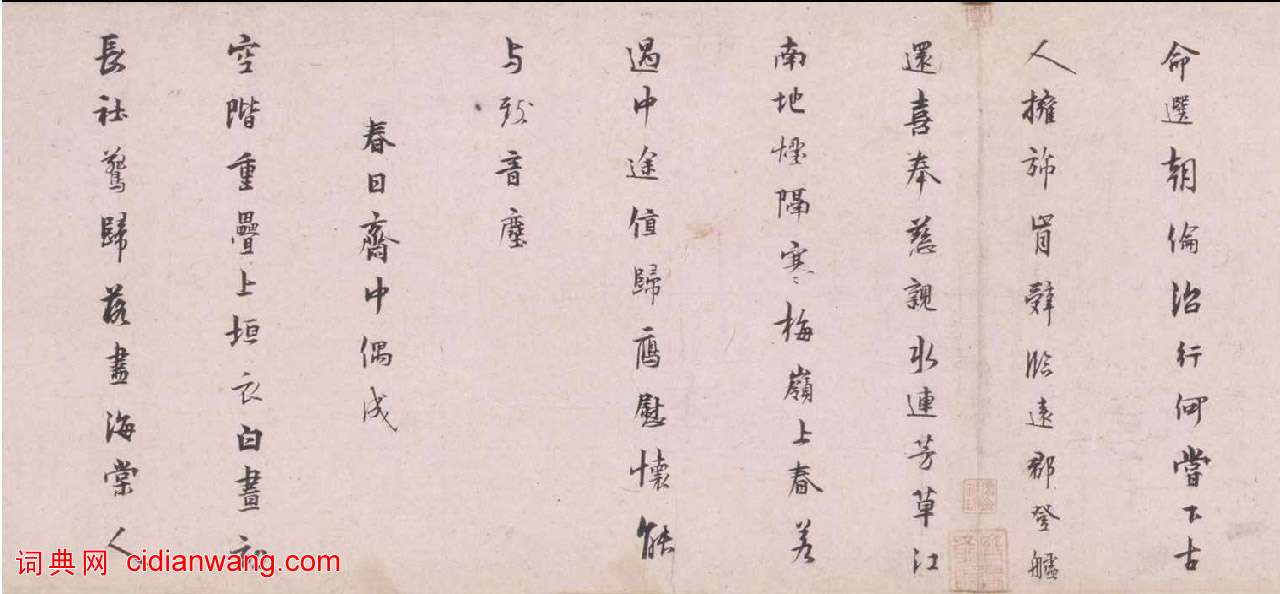 命選朝倫治行何嘗下古
人擁旆宵辭臨遠郡登艫
還喜奉慈親水連芳草江
南地煙隔寒梅嶺上春若
過中途值歸雁慰懷能
与致音塵
春日齋中偶成
空階重疊上垣衣白晝初
長社鷰歸落盡海棠人
词典网 cidianwang.com